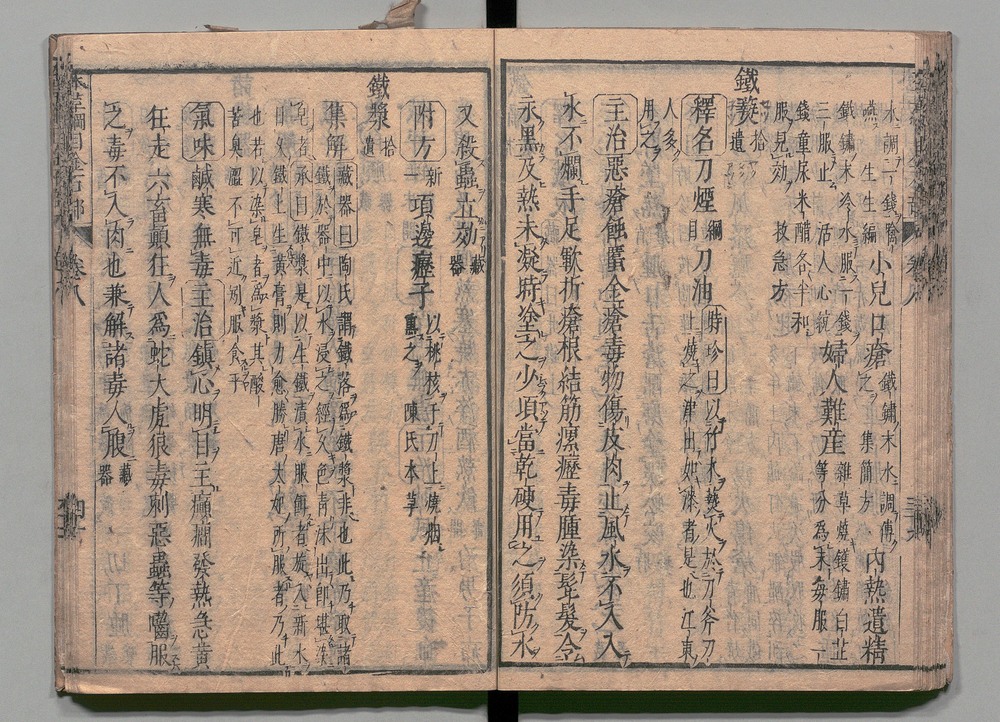 生生編
小兒口瘡
鐵鏽末水調傅
之 集簡方
內熱遺精
鐵鏽末冷水服一錢
三服止 活人心統
婦人難産
雜草燒鑊鏽白芷
等分為末每服一
錢童尿米醋各半和
服見効 救急方
鐵爇 拾遺
釋名刀煙綱目刀油
時珍曰以竹木爇火於刀斧刃
上燒之津出如漆者是也江東
人多
用之
主治惡瘡蝕䘌金瘡毒物傷皮肉止風水不入入
水不爛手足皸折瘡根結筋瘰癧毒腫染髭髮令
永黑及熱未凝時塗之少項當乾硬用之須防水
又殺蟲立効藏器
附方新一項邊癧子
以桃核于刀上燒烟
熏之 陳氏本草
鐵漿 拾遺
集解
藏器曰陶氏謂鐵落為鐵漿非也此乃取諸
鐵於器中以水浸之經久色青沫出即堪染
皂者承曰鐵漿是以生鐵漬水服餌者旋入新水
日久鐵上生黃膏則力愈勝唐太妃所服者乃此
也若以染皂者為漿其酸
苦臭濇不可近别服食乎
氣味鹹寒無毒主治鎮心明目主癲癎發熱急黃
狂走六畜顛狂人為蛇犬虎狼毒刺惡蟲等囓服
之毒不入肉也兼解諸毒入腹藏器
本草綱目金石部 卷八